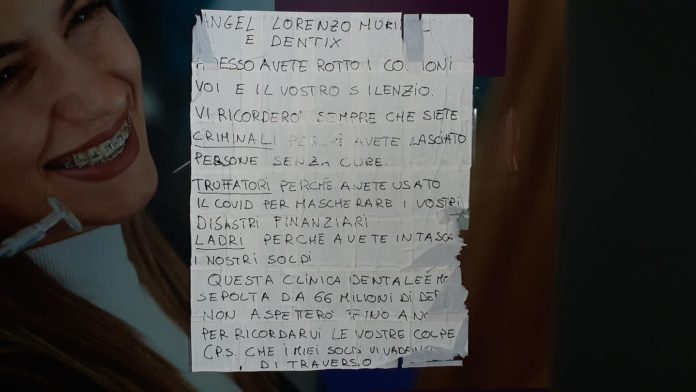 ANGEL LORENZO MURI
E DENTIX
ESSO AVETE ROTTO I CO IONI
VOI E IL VOSTRO SILENZIO.
VI RICORDERO' SEMPRE CHE SIETE
CRIMINALI PERCHÉ AVETE LASCIATO
PERSONE SENZA CURE.
TRUFFATORI PERCHÉ AVETE USATO
IL COVID PER MASCHERARE I VOSTRI
DISASTRI FINANZIARI
LADRI PERCHÉ AVETE INTASC
I NOSTRI SOLDI
QUESTA CLINICA DENTALE É MO
SEPOLTA DA 66 MILIONI DI DE
NON ASPETTERO' FINO A NO
PER RICORDARVI LE VOSTRE COLPE
CHE I MIEI SOLDI VI VADAN
DI TRAVERSO